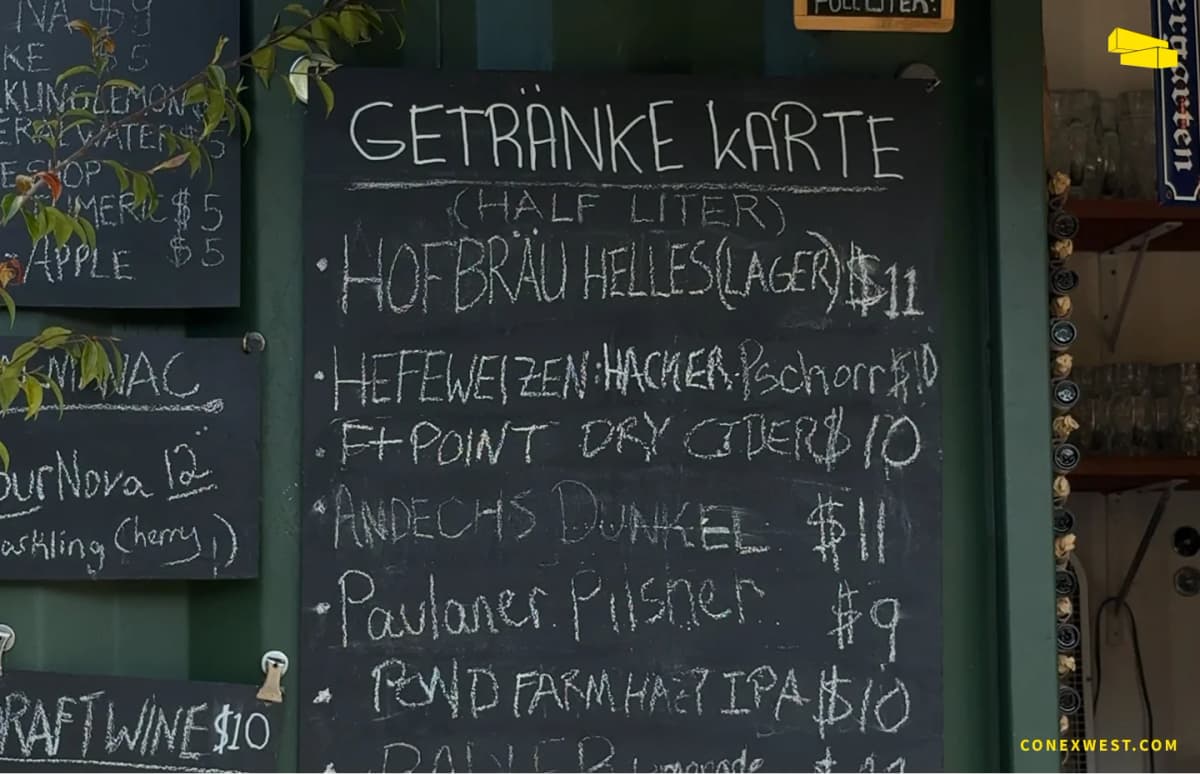 NA $9
KE $5
KLING LEMON
ERAL WATER $5
OP
$5
APPLE $5
NAC
ourNova 12
arkling Cherry
RAFT WINE $10
FULL LITER:
GETRÄNKE KARTE
(HALF LITER)
• HOFBRÄU HELLES (LAGER) $11
• HEFEWEIZEN: HACKER-Pschorr $10
• Ft POINT DRY CIDER $10
• ANDECHS DUNKEL $11
• Paulaner Pilsner $9
• POND FARM HAZY IPA $10
ergarten
CONEXWEST.COM